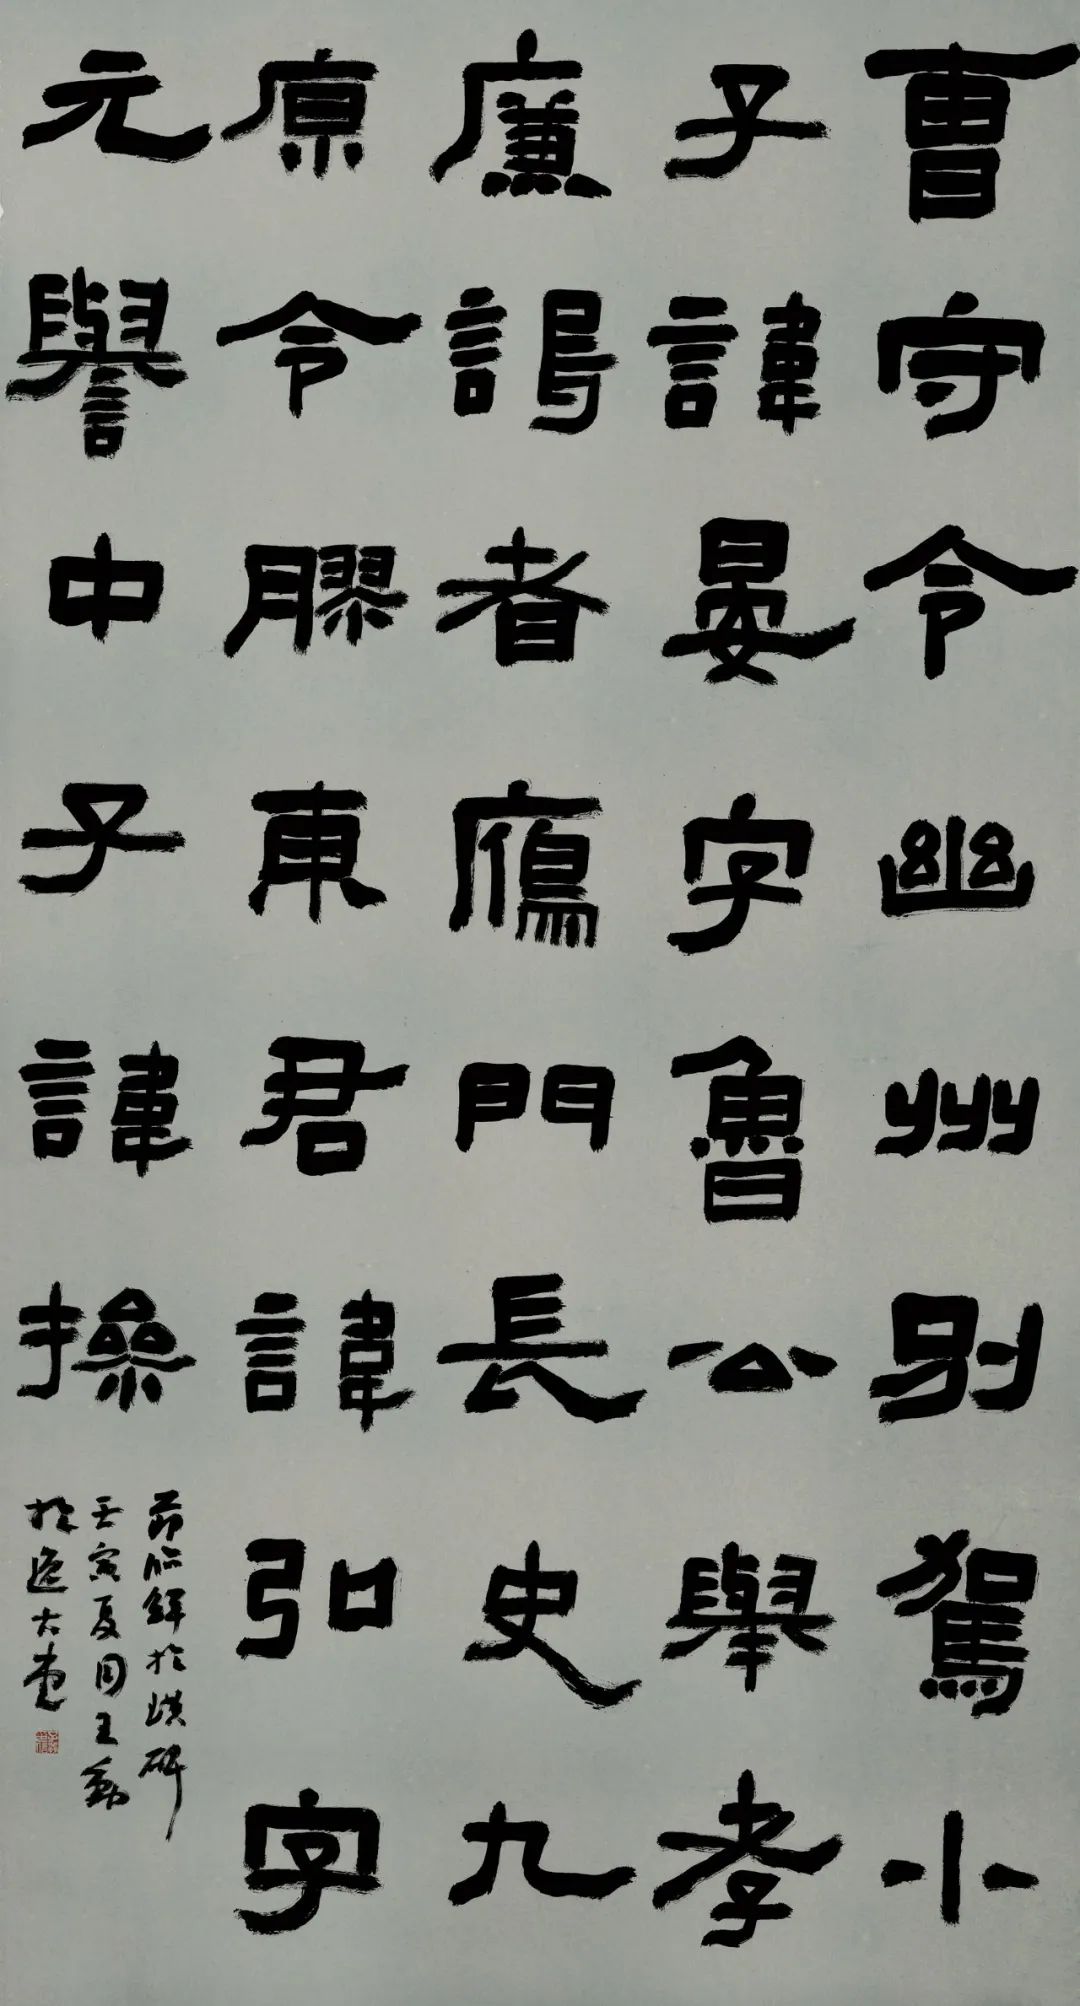 曹守令幽州別駕小
子諱晏字魯公舉孝
廉謁者鴈門長史九
原令膠東君諱弘字
元譽中子諱操
節臨鮮於璜碑
壬寅夏月王勇
於逸大堂